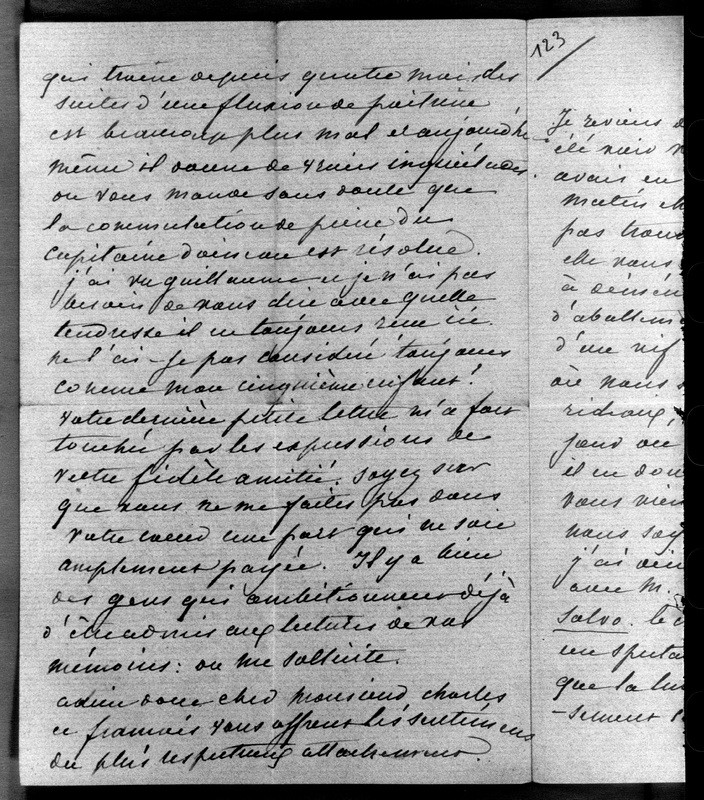 qui traine depuis quatre mois des
suites d'une fluxion de poitrine
est beaucoup plus mal et aujourd'hui
même il donne de vraies inquiétudes.
on vous mande sans doute que
la commutation de peine du
capitaine doineau est résolue.
j'ai vu guillaume et je n'ai pas
besoin de vous dire avec quelle
tendresse il est toujours reçu ici.
ne l'ai-je pas considéré toujours
comme mon cinquième enfant!
votre dernière petite lettre m'a fort
touchée par les expressions de
votre fidèle amitié. soyez sur
que vous ne me faites pas dans
votre coeur une part qui ne soit
amplement payée. Il y a bien
des gens qui ambitionnent déjà
d'être admis aux lectures de vos
mémoires: on me sollicite.
adieu donc cher Monsieur charles
et françois vous offrent les sentimens
du plus respectueux attachement.
123
Je reviens
été
avais eu
matin
pas trouv
elle vous
à
d'abattem
d'une vif
où nous
jour où
il en don
vous vien
vous soy
j'ai
avec M.
Salvo. le
un specta
que la lu
-sement